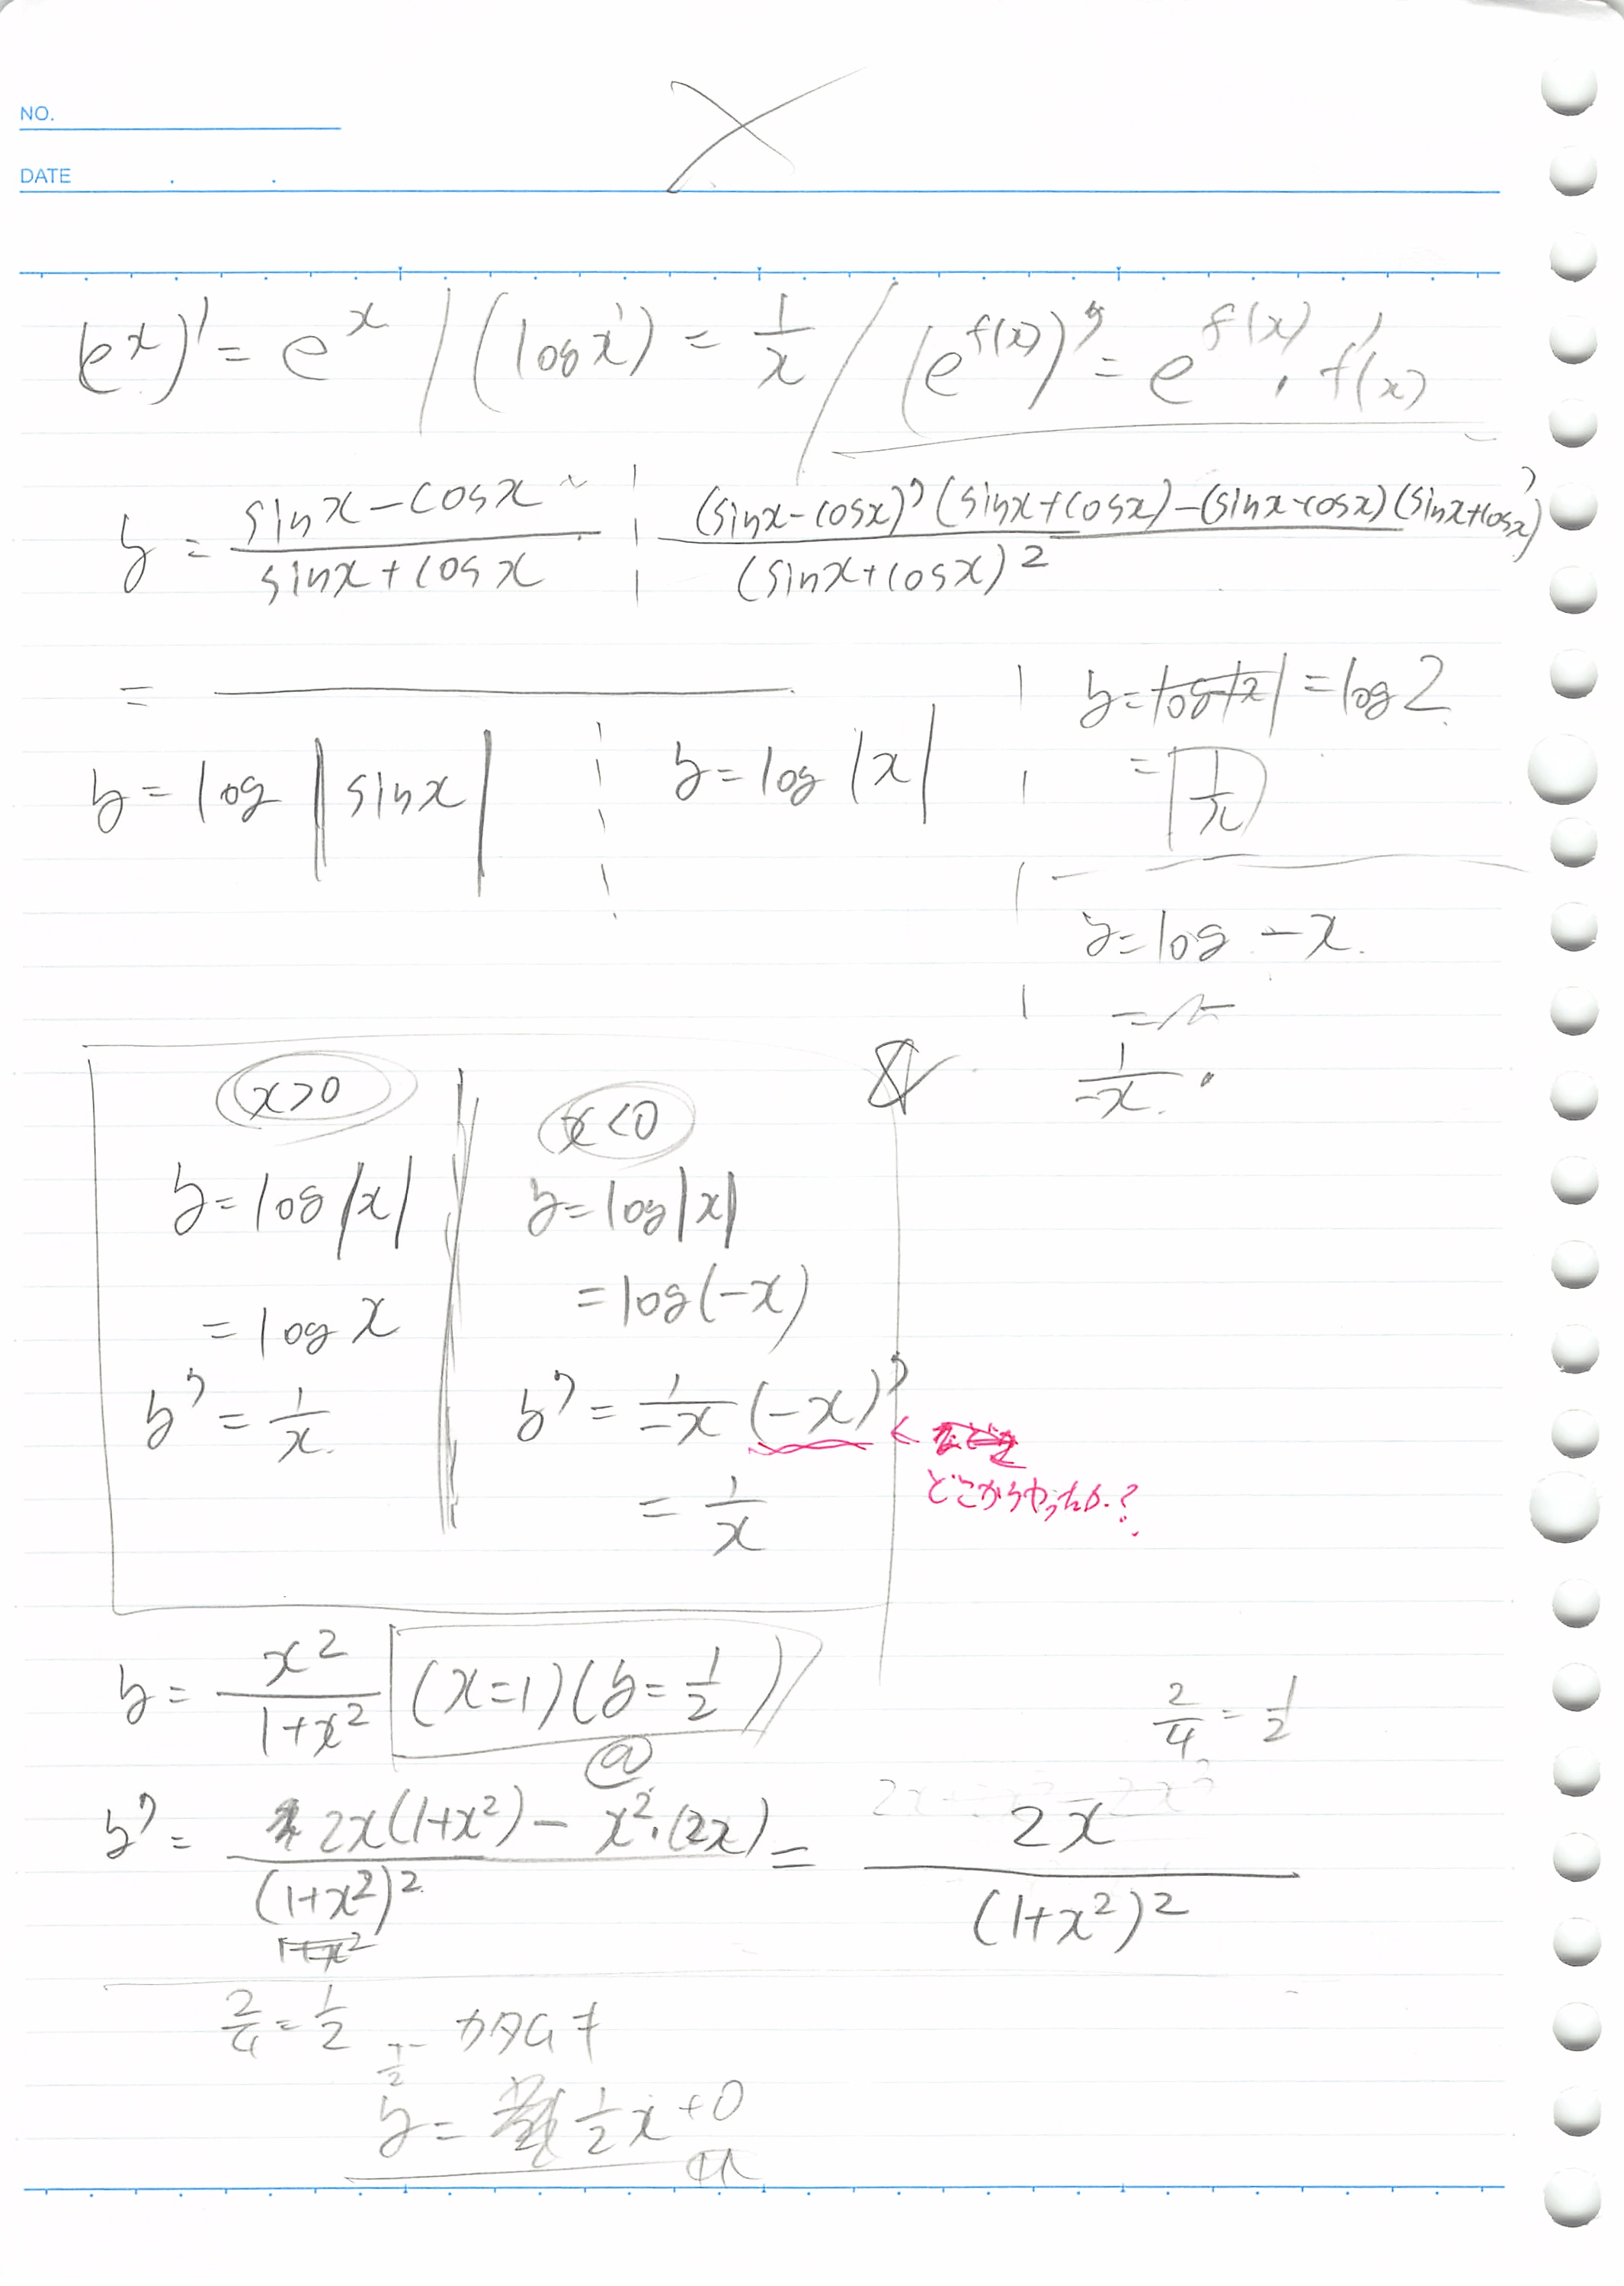 NO.
DATE
(e^x)' = e^x / (log x)' = 1/x / (e^f(x))' = e^f(x) · f'(x)
y = (sinx - cosx)/(sinx + cosx) | ((sinx - cosx)'(sinx + cosx) - (sinx - cosx)(sinx + cosx)')/(sinx + cosx)^2
=
y = log |sinx|
y = log |x|
y = log |x| = log x
= 1/x
y = log -x
1/-x
x>0
y = log |x|
= log x
y' = 1/x
x<0
y = log |x|
= log (-x)
y' = 1/-x (-x)'
= 1/x
どこからやったか?
y = x^2/(1+x^2) (x=1)(y=1/2)
2/4 = 1/2
y' = (2x(1+x^2) - x^2·(2x))/(1+x^2)^2 = 2x/(1+x^2)^2
1+x^2
2/4 = 1/2
y = 1/2 x + 0